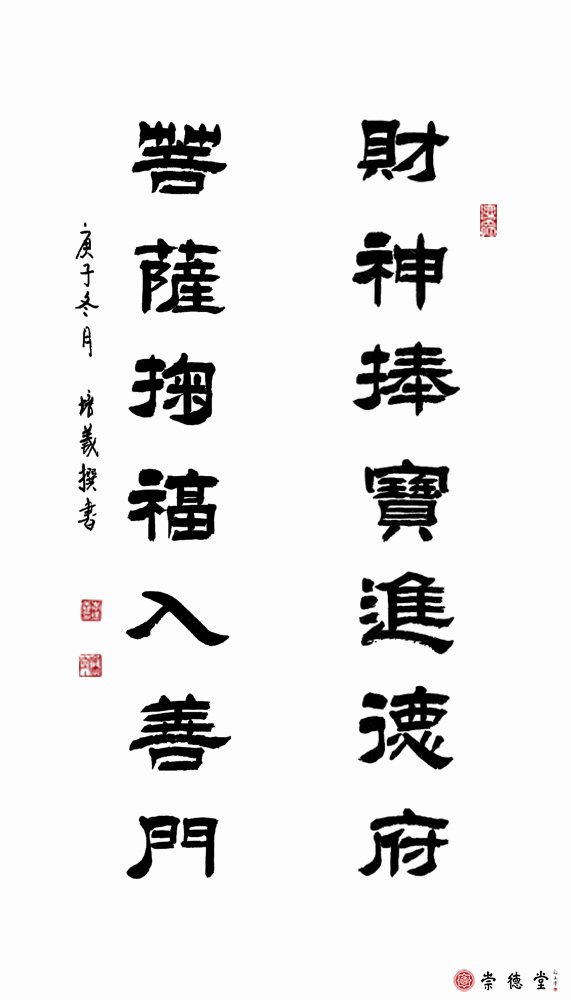 財神捧寶進德府
菩薩掬福入善門
庚子冬月 培義撰书
崇德堂